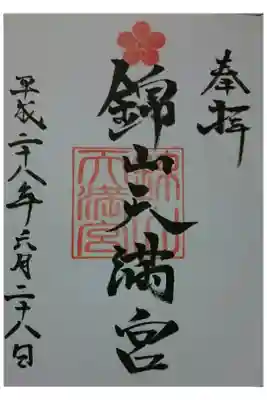 奉拝
錦山天満宮
錦山天満宮
平成二十八年六月二十八日